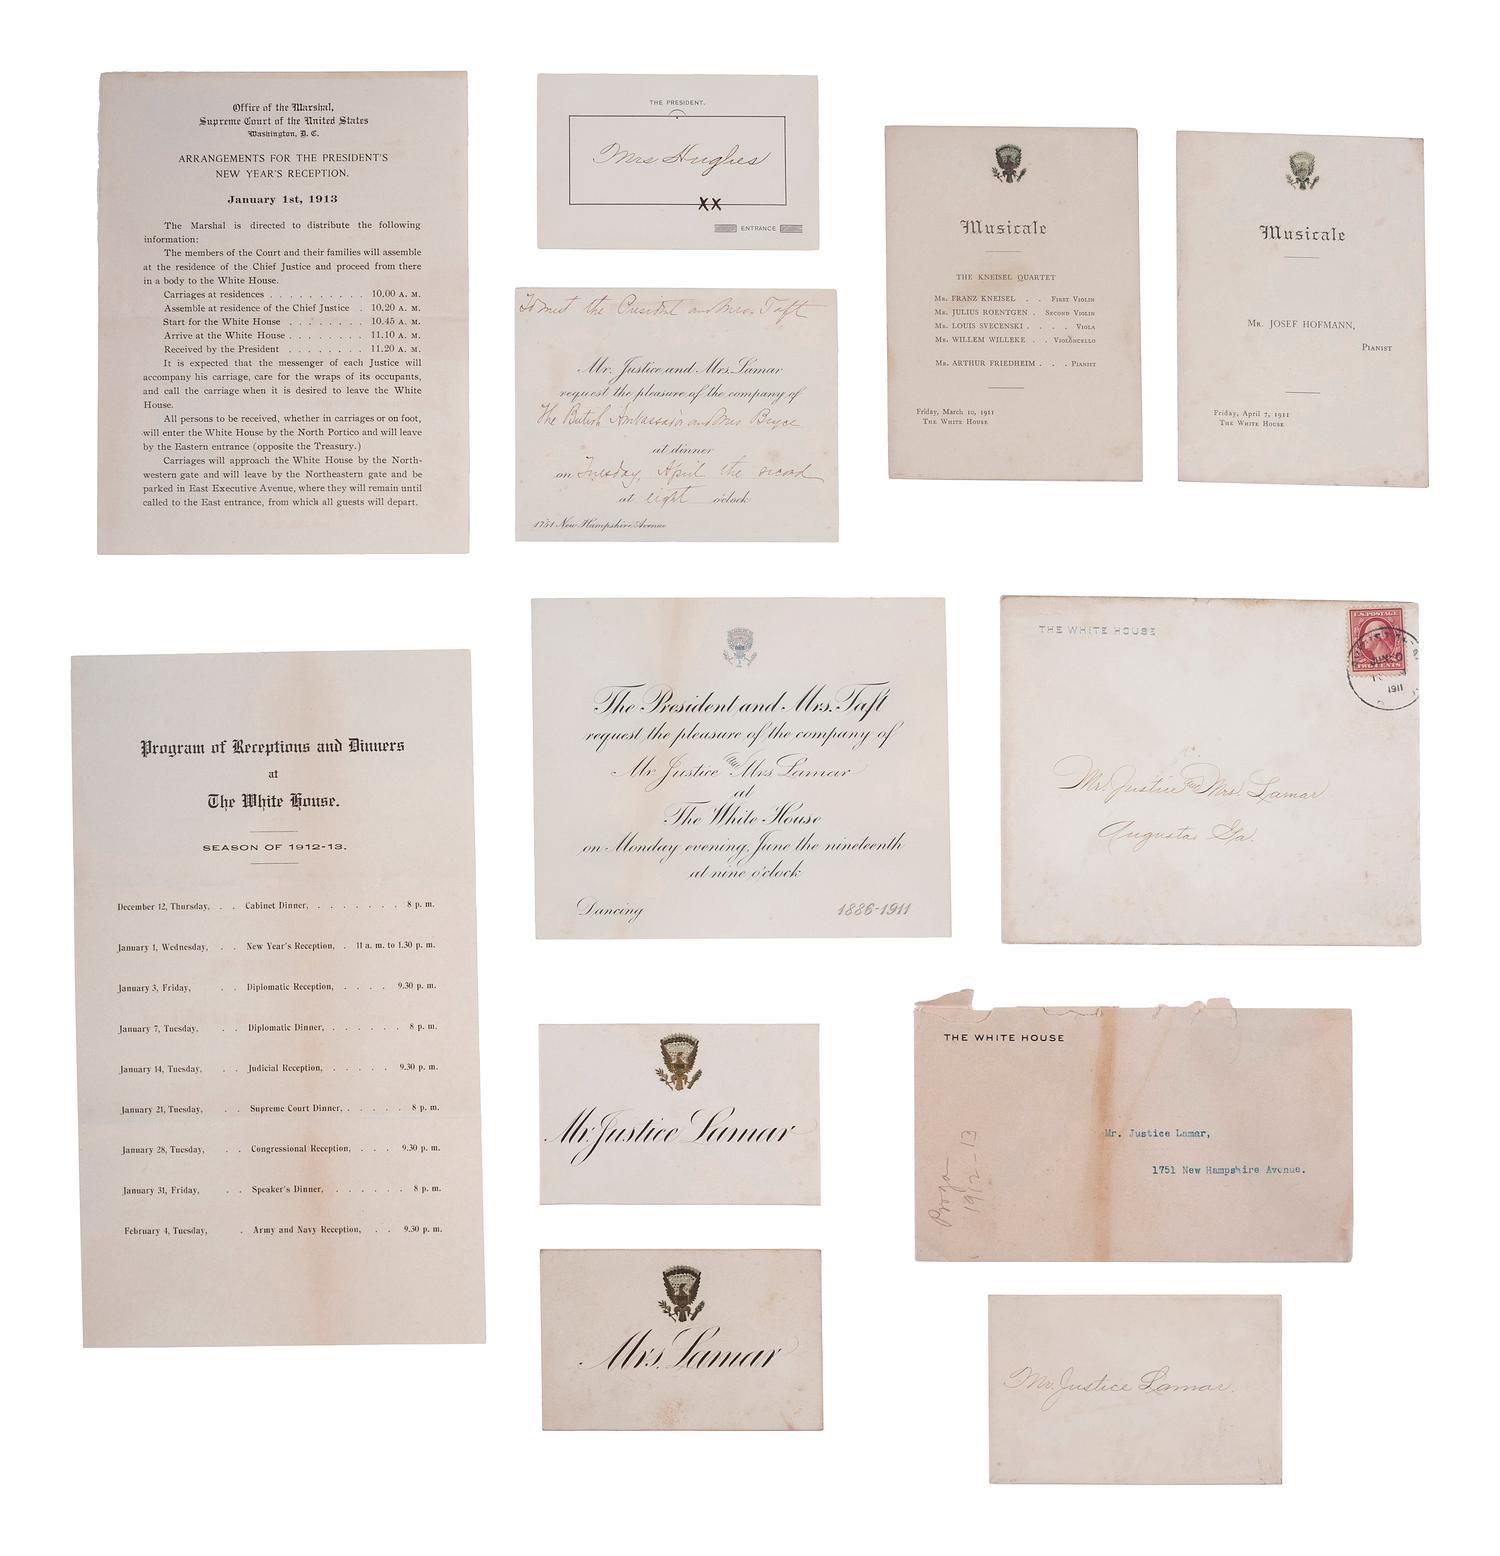 Office of the Marshal,
Supreme Court of the United States
Washington, D. C.
ARRANGEMENTS FOR THE PRESIDENT'S
NEW YEAR'S RECEPTION.
January 1st, 1913
The Marshal is directed to distribute the following
information:
The members of the Court and their families will assemble
at the residence of the Chief Justice and proceed from there
in a body to the White House.
Carriages at residences . . . . . . . . . . 10.00 A. M.
Assemble at residence of the Chief Justice . 10.20 A. M.
Start for the White House . . . . . . . . 10.45 A. M.
Arrive at the White House . . . . . . . . 11.10 A. M.
Received by the President . . . . . . . . 11.20 A. M.
It is expected that the messenger of each Justice will
accompany his carriage, care for the wraps of its occupants,
and call the carriage when it is desired to leave the White
House.
All persons to be received, whether in carriages or on foot,
will enter the White House by the North Portico and will leave
by the Eastern entrance (opposite the Treasury.)
Carriages will approach the White House by the North-
western gate and will leave by the Northeastern gate and be
parked in East Executive Avenue, where they will remain until
called to the East entrance, from which all guests will depart.
THE PRESIDENT.
Mrs Hughes
XX
ENTRANCE
To meet the President and Mrs. Taft
Mr. Justice and Mrs. Lamar
request the pleasure of the company of
The British Ambassador and Mrs Bryce
at dinner
on Tuesday, April the second
at eight o'clock
1751 New Hampshire Avenue
Musicale
THE KNEISEL QUARTET
MR. FRANZ KNEISEL . . FIRST VIOLIN
MR. JULIUS ROENTGEN . SECOND VIOLIN
MR. LOUIS SVECENSKI . . . . VIOLA
MR. WILLEM WILLEKE . . VIOLONCELLO
MR. ARTHUR FRIEDHEIM . . . PIANIST
Friday, March 10, 1911
THE WHITE HOUSE
Musicale
MR. JOSEF HOFMANN,
PIANIST
Friday, April 7, 1911
THE WHITE HOUSE
Program of Receptions and Dinners
at
The White House.
SEASON OF 1912-13.
December 12, Thursday, . . Cabinet Dinner, . . . . . . . 8 p. m.
January 1, Wednesday, . . New Year's Reception, . 11 a. m. to 1.30 p. m.
January 3, Friday, . . Diplomatic Reception, . . . . 9.30 p. m.
January 7, Tuesday, . . Diplomatic Dinner, . . . . . . 8 p. m.
January 14, Tuesday, . . Judicial Reception, . . . . . 9.30 p. m.
January 21, Tuesday, . . Supreme Court Dinner, . . . . . 8 p. m.
January 28, Tuesday, . . Congressional Reception, . . . 9.30 p. m.
January 31, Friday, . . Speaker's Dinner, . . . . . . 8 p. m.
February 4, Tuesday, . Army and Navy Reception, . . 9.30 p. m.
The President and Mrs. Taft
request the pleasure of the company of
Mr. Justice and Mrs Lamar
at
The White House
on Monday evening, June the nineteenth
at nine o'clock
Dancing 1886-1911
THE WHITE HOUSE
U.S. POSTAGE
TWO CENTS
1911
Mr. Justice and Mrs. Lamar
Augusta Ga.
Mr. Justice Lamar
Mrs. Lamar
THE WHITE HOUSE
Mr. Justice Lamar,
1751 New Hampshire Avenue.
Program
1912-13
Mr. Justice Lamar.